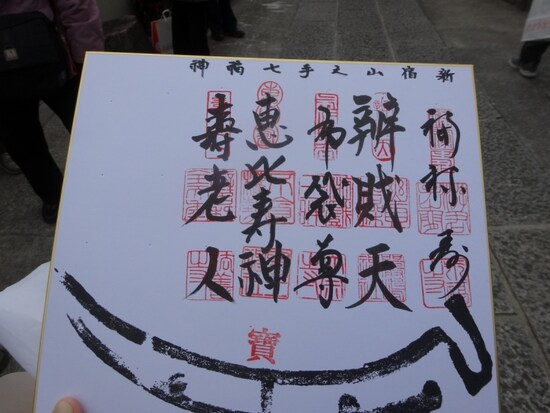 新宿山之手七福神
福禄寿
辨財天
布袋尊
恵比寿神
寿老人
寳